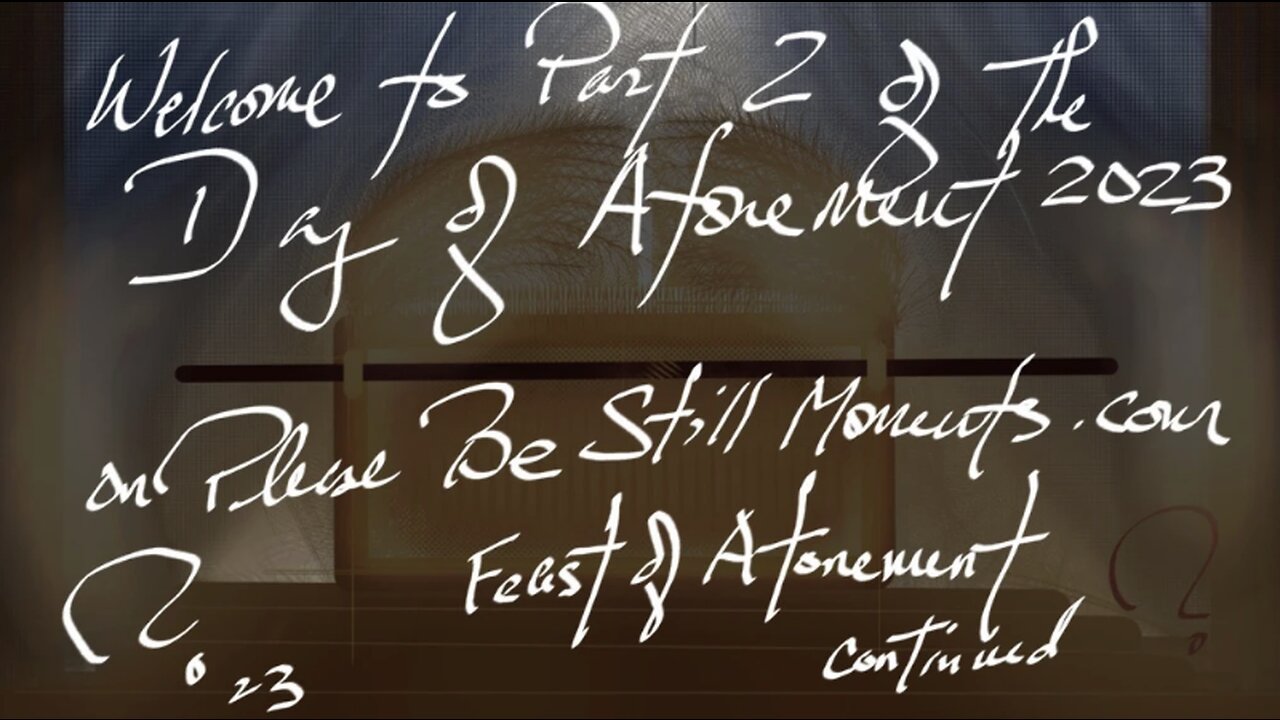 Welcome to Part 2 of The
Day of Atonement 2023
on Please Be Still Moments.com
Feast of Atonement
continued
23